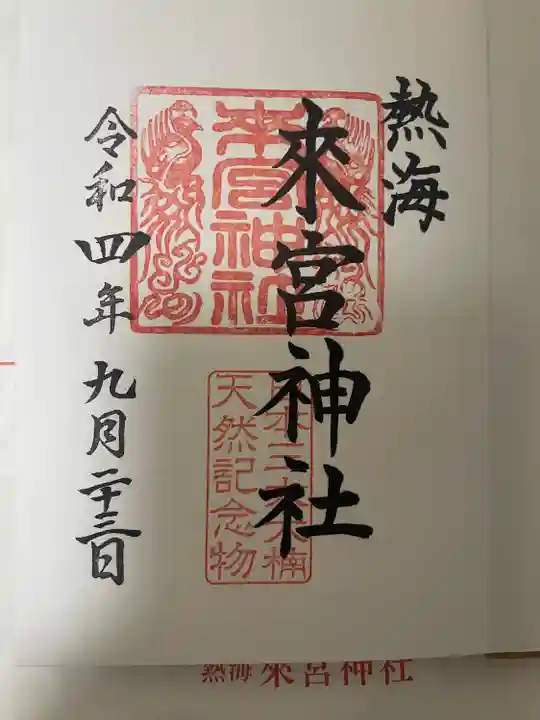 熱海
來宮神社
令和四年九月二十三日
來宮神社
日本三大大楠
天然記念物
熱海 來宮神社